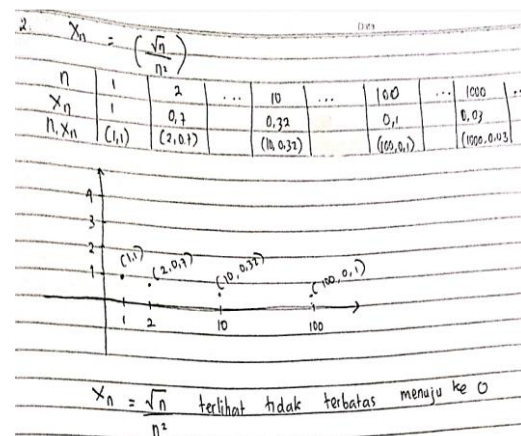 2. Xn = (√n / n²)
n 1 2 ... 10 ... 100 ... 1000 ..
Xn 1 0,7 0,32 0,1 0,03
n, Xn (1,1) (2,0.7) (10,0.32) (100,0.1) (1000,0.03
4
3
2
1
(1,1) (2,0,7) (10,0,32) (100,0,1)
1 2 10 100
Xn = √n / n² terlihat tidak terbatas menuju ke 0